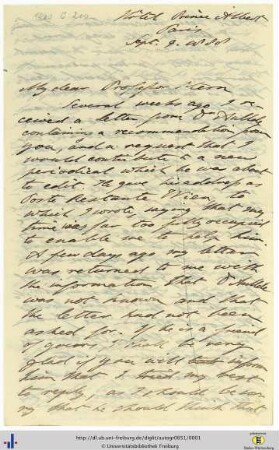 Hotel Prince Albert
Paris
Sept. 9.
My dear Professor Stern
Several weeks ago I re-
ceived a letter from D
containing a recommendation from
you, and a request that I
would contribute to a new
periodical which he was about
to edit. He gave his address as
Poste Restante Wien, to
which I wrote, saying that my
time was far too fully occupied
to enable me to help him
A few days ago my letter
was returned to me with
the information that D
was not known and that
the letter had not been
asked for. If he is a friend
of yours, I shall be very
glad if you will inform
him that I
to reply, as I should be sor-
ry that he should think that
http://dl.ub.uni-freiburg.de/diglit/autogr0031/0001
© Universitätsbibliothek Freiburg